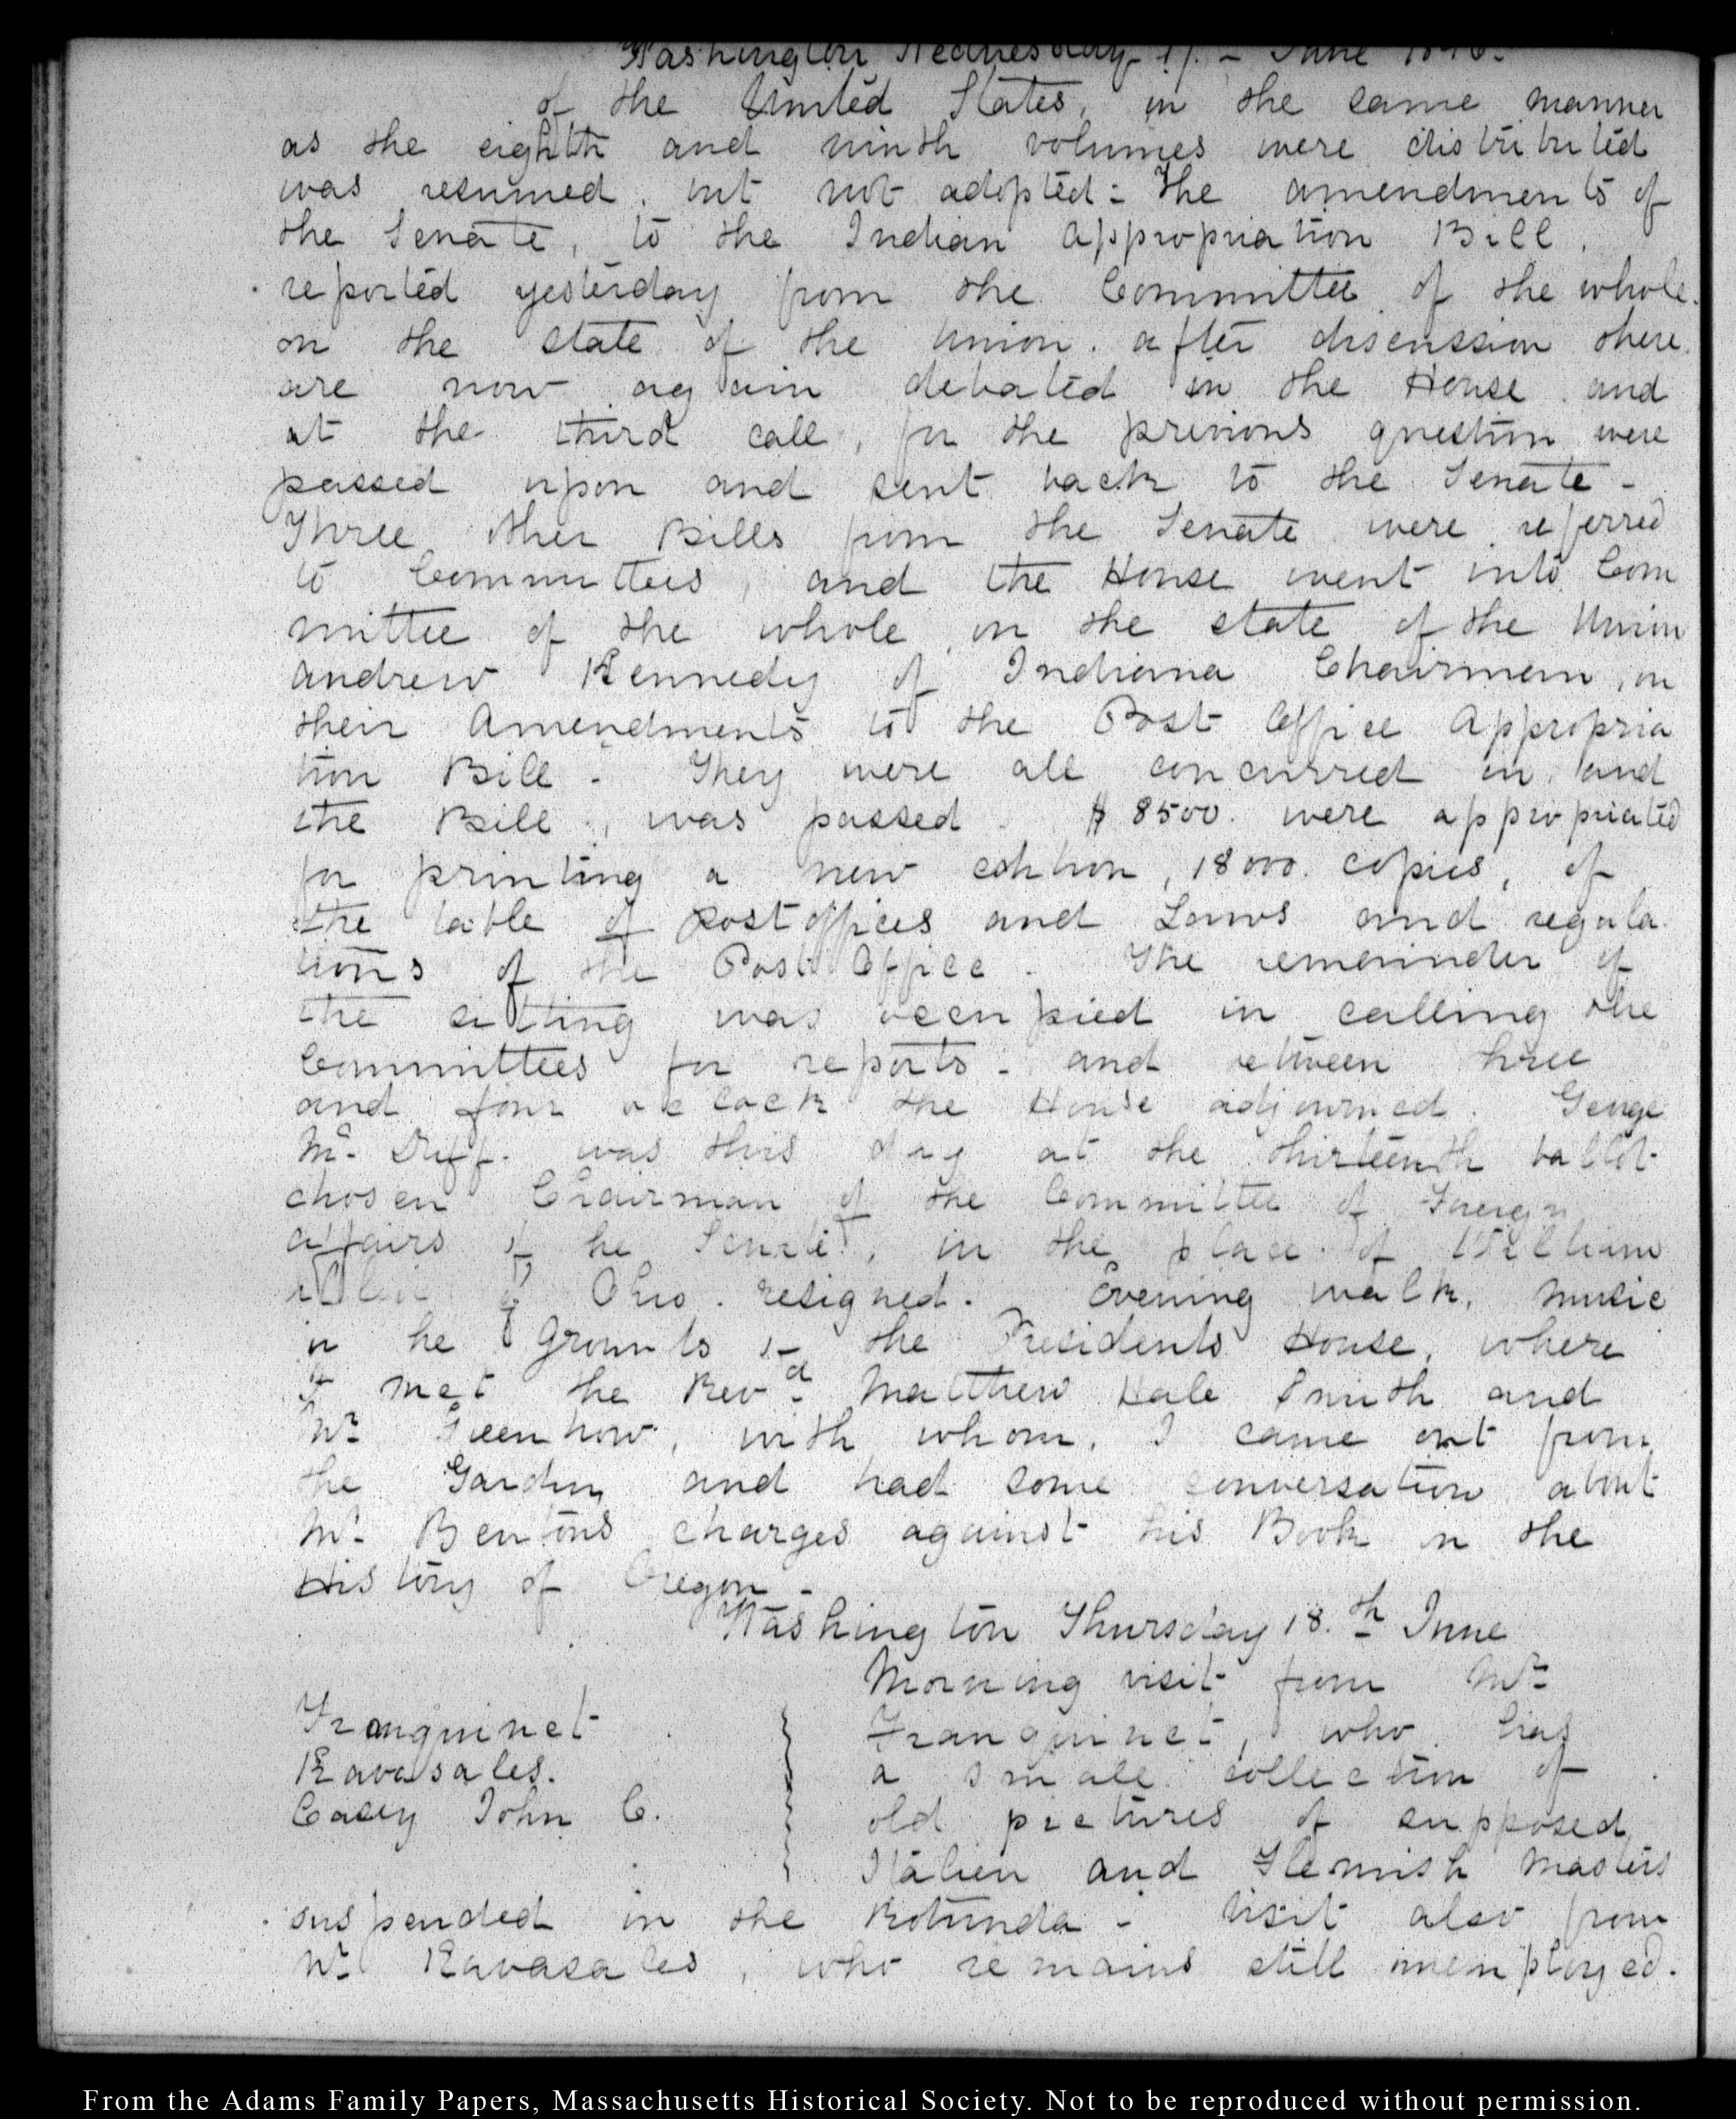 Washington Wednesday 17. - June 1846.
of the United States, in the same manner
as the eighth and ninth volumes were distributed
was resumed. but not adopted - The amendments of
the Senate, to the Indian Appropriation Bill,
reported yesterday from the Committee of the whole
on the state of the Union. after discussion there
are now again debated in the House and
at the third call, for the previous question were
passed upon and sent back to the Senate -
Three other Bills from the Senate were referred
to Committees, and the House went into Com
mittee of the whole on the state of the Union
Andrew Kennedy of Indiana Chairman, on
their Amendments to the Post Office Appropria
tion Bill - They were all concurred in and
the Bill, was passed. $8500. were appropriated
for printing a new edition, 18000. copies, of
the table of post offices and Laws and regula
tions of the Post Office. The remainder of
the sitting was occupied in calling the
Committees for reports - and between three
and four o clock the House adjourned. George
Mc. Duff. was this day at the thirteenth ballot
chosen Chairman of the Committee of Foreign
affairs of the Senate, in the place of William
Allen of Ohio. resigned. Evening walk, music
in the Grounds of the Presidents House, where
I met the Revd. Matthew Hale Smith and
Mr Greenhow, with whom, I came out from
the Garden and had some conversation about
Mr. Bentons charges against his Book on the
History of Oregon -
Washington Thursday 18.th June
Morning visit from Mr
Franquinet
Ravasales.
Casey John C.
Franquinet, who has
a small collection of
old pictures of supposed
Italien and Flemish masters
suspended in the Rotunda - Visit also from
Mr Ravasales, who remains still unemployed.
From the Adams Family Papers, Massachusetts Historical Society. Not to be reproduced without permission.